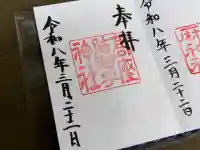 奉拝
令和八年三月二十二日
神社
令和八年三月二十二日